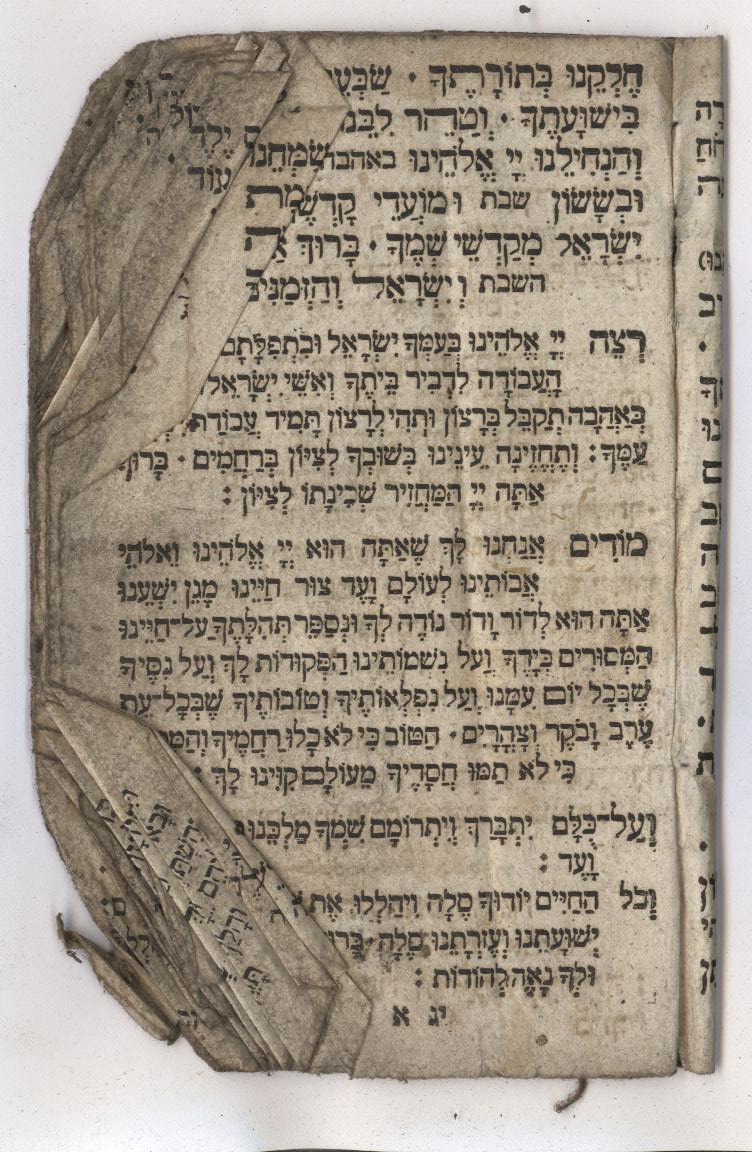 חֶלְקֵנוּ בְּתוֹרָתֶךָ · שַׂבְּעֵ
בִּישׁוּעָתֶךָ · וְטַהֵר לִבֵּנוּ
וְהַנְחִילֵנוּ יְיָ אֱלֹהֵינוּ באהבה שִׂמְחֵנוּ
וּבְשָׂשׂוֹן שבת וּמוֹעֲדֵי קָדְשֶׁ
יִשְׂרָאֵל מְקַדְּשֵׁי שְׁמֶךָ · בָּרוּךְ אַ
השבת וְיִשְׂרָאֵל וְהַזְּמַנִּים
רְצֵה יְיָ אֱלֹהֵינוּ בְּעַמְּךָ יִשְׂרָאֵל וּבִתְפִלָּתָם
הָעֲבוֹדָה לִדְבִיר בֵּיתֶךָ וְאִשֵּׁי יִשְׂרָאֵל
בְּאַהֲבָה תְקַבֵּל בְּרָצוֹן וּתְהִי לְרָצוֹן תָּמִיד עֲבוֹדַת
עַמֶּךָ : וְתֶחֱזֶינָה עֵינֵינוּ בְּשׁוּבְךָ לְצִיּוֹן בְּרַחֲמִים · בָּרוּךְ
אַתָּה יְיָ הַמַּחֲזִיר שְׁכִינָתוֹ לְצִיּוֹן :
מוֹדִים אֲנַחְנוּ לָךְ שָׁאַתָּה הוּא יְיָ אֱלֹהֵינוּ וֵאלֹהֵי
אֲבוֹתֵינוּ לְעוֹלָם וָעֶד צוּר חַיֵּינוּ מָגֵן יִשְׁעֵנוּ
אַתָּה הוּא לְדוֹר וָדוֹר נוֹדֶה לְךָ וּנְסַפֵּר תְּהִלָּתֶךָ עַל־חַיֵּינוּ
הַמְּסוּרִים בְּיָדֶךָ וְעַל נִשְׁמוֹתֵינוּ הַפְּקוּדוֹת לָךְ וְעַל נִסֶּיךָ
שֶׁבְּכָל יוֹם עִמָּנוּ וְעַל נִפְלְאוֹתֶיךָ וְטוֹבוֹתֶיךָ שֶׁבְּכָל־עֵת
עֶרֶב וָבֹקֶר וְצָהֳרָיִם · הַטּוֹב כִּי לֹא כָלוּ רַחֲמֶיךָ וְהַמְּ
כִּי לֹא תַמּוּ חֲסָדֶיךָ מֵעוֹלָם קִוִּינוּ לָךְ :
וְעַל־כֻּלָּם יִתְבָּרַךְ וְיִתְרוֹמַם שִׁמְךָ מַלְכֵּנוּ
וָעֶד :
וְכֹל הַחַיִּים יוֹדוּךָ סֶלָה וִיהַלְלוּ אֶת
יְשׁוּעָתֵנוּ וְעֶזְרָתֵנוּ סֶלָה · בָּרוּ
וּלְךָ נָאֶה לְהוֹדוֹת :
יג א